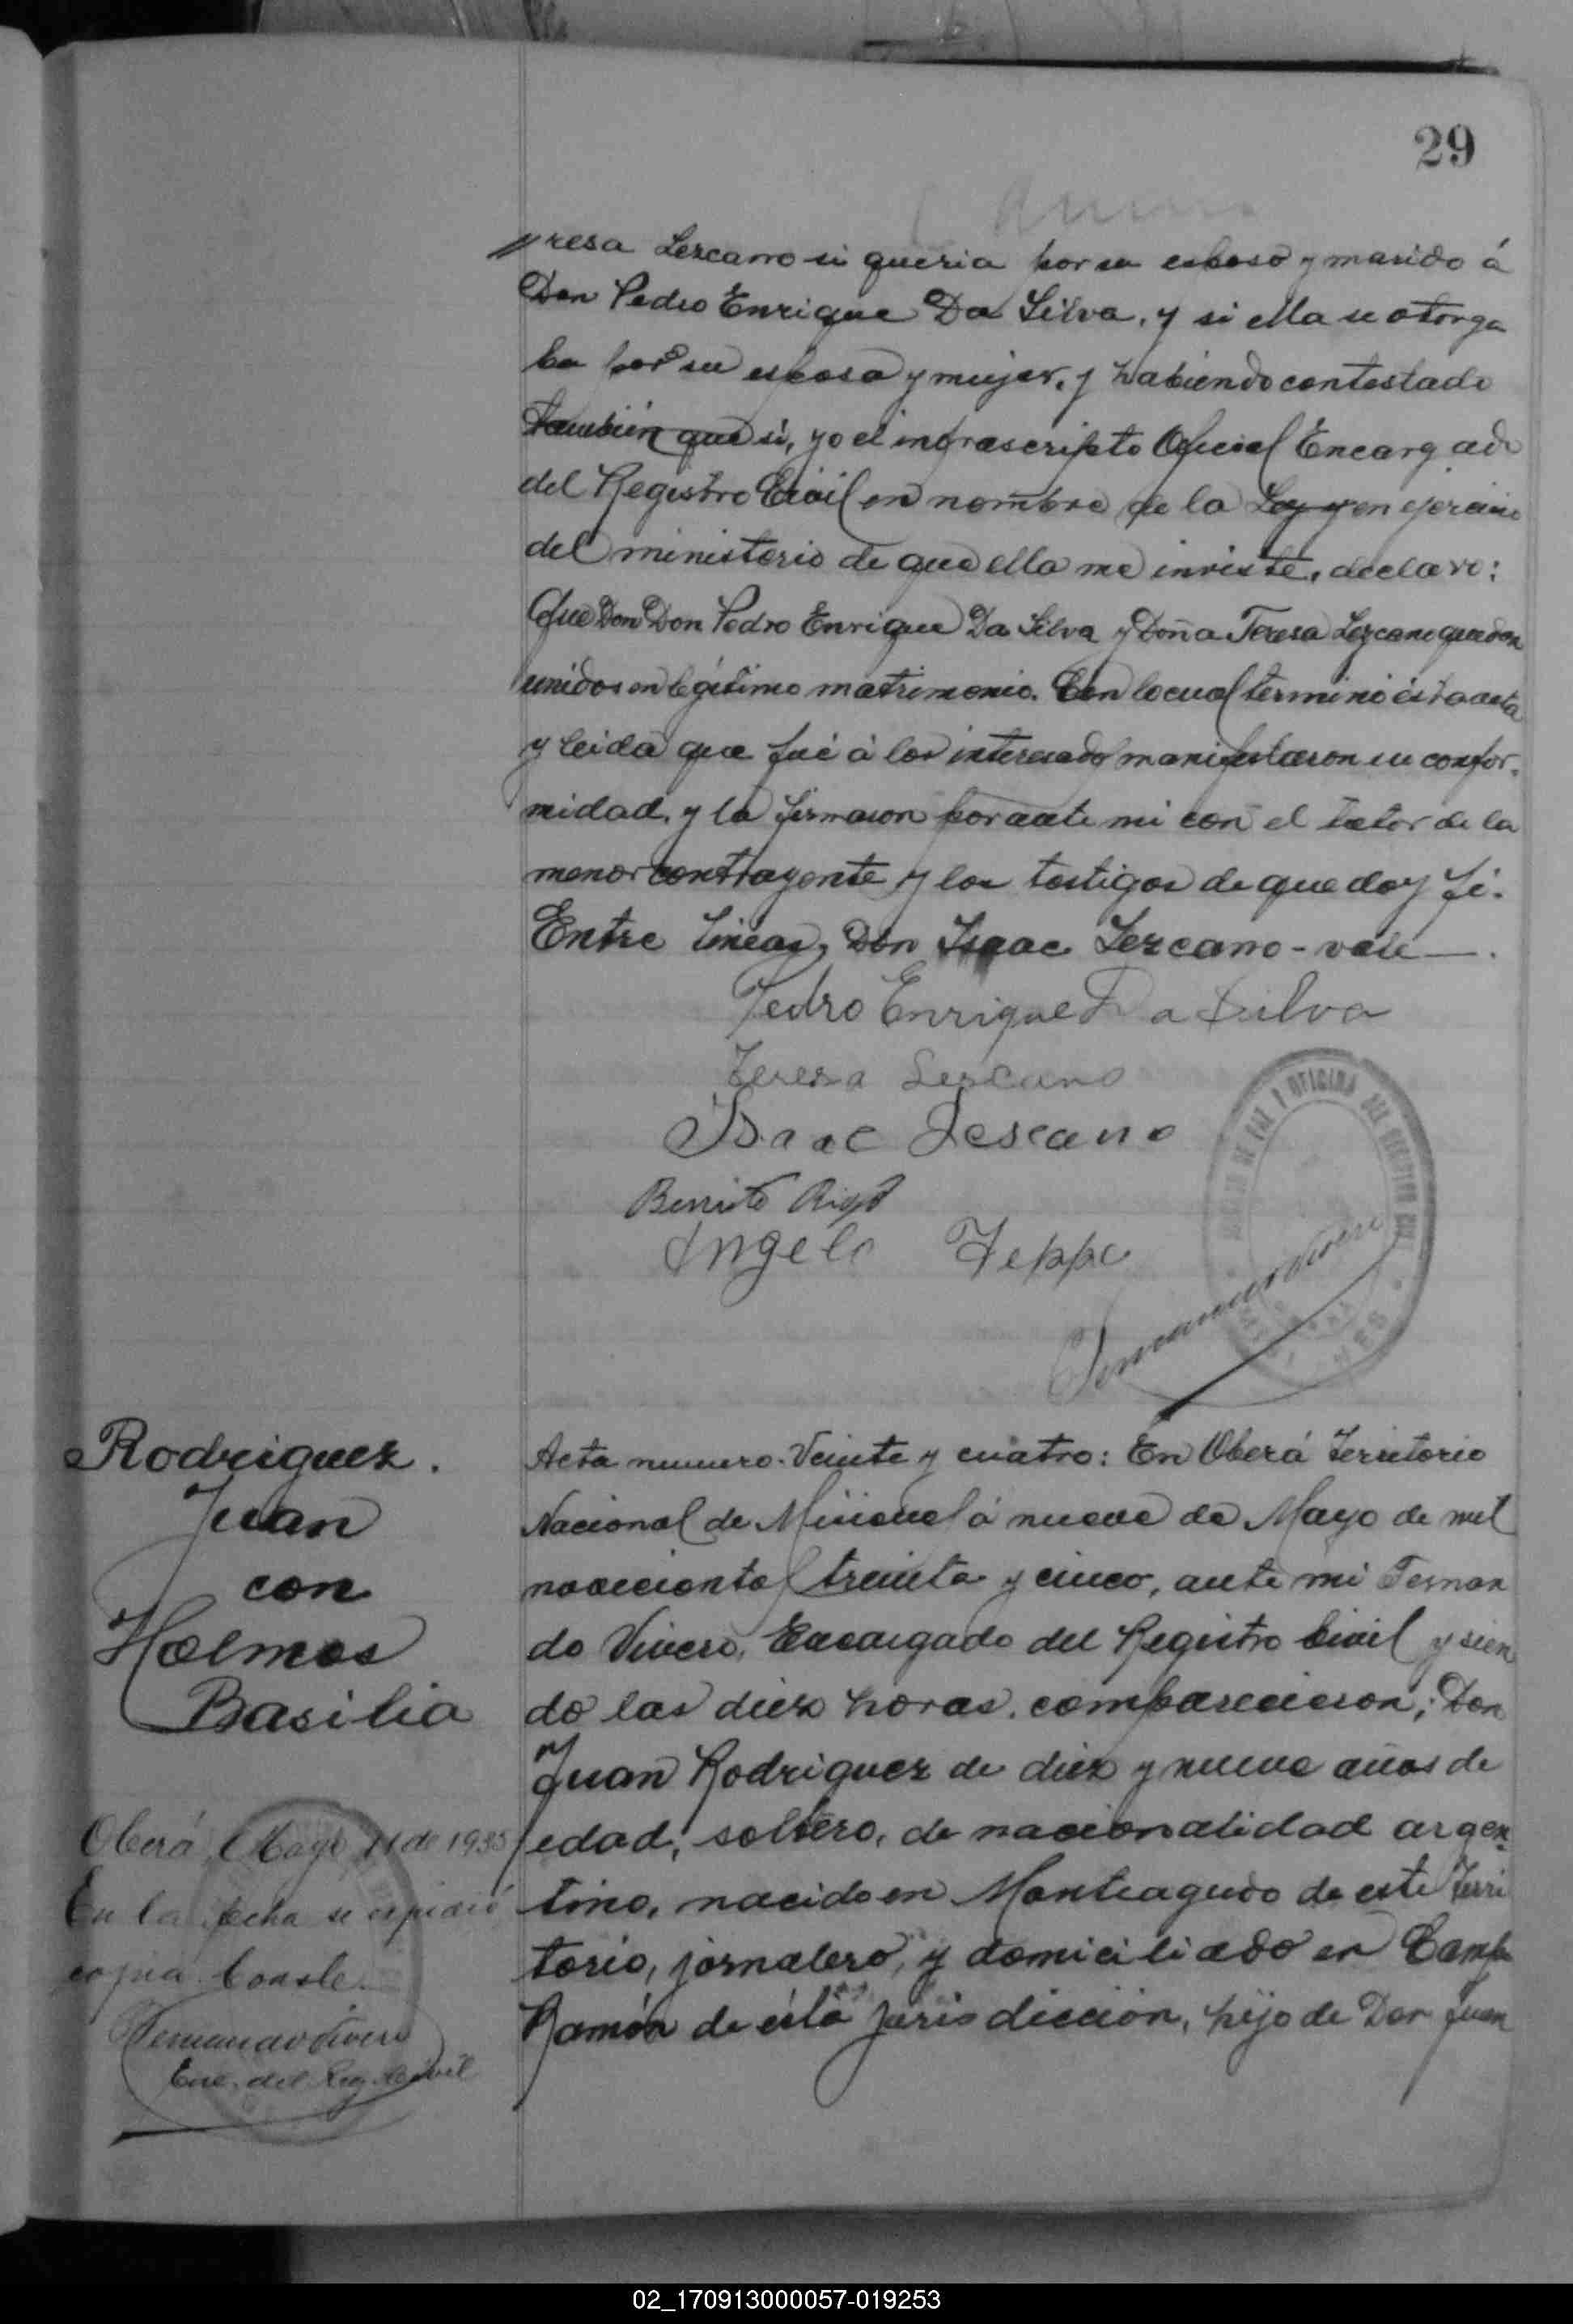 29
resa Lezcano si queria por su esposo y marido á
Don Pedro Enrique Da Silva, y si ella se otorga
ba por su esposa y mujer, y habiendo contestado
también que si, yo el infrascripto Oficial Encargado
del Registro Civil en nombre de la Ley y en ejercicio
del ministerio de que ella me inviste, declaro:
Que Don Don Pedro Enrique Da Silva y Doña Teresa Lezcano quedan
unidos en legítimo matrimonio. Con lo cual terminó ésta acta
y leida que fué á los interesados manifestaron su confor-
midad, y la firmaron por ante mi con el tutor de la
menor contrayente y los testigos de que doy fé.
Entre líneas, Don Isaac Lezcano - vale —.
Pedro Enrique Da Silva
Teresa Lescano
Isaac Lescano
Benito
Angelo Zeppe
Fernando Vivero
Rodriguez.
Juan
con
Holmos
Basilia
Oberá, Mayo 11 de 1935
En la fecha se expidió
copia. Conste.
Fernando Vivero
Enc. del Reg. Civil
Acta numero. Veinte y cuatro: En Oberá Territorio
Nacional de Misiones á nueve de Mayo de mil
novecientos treinta y cinco, ante mi Fernan
do Vivero, Encargado del Registro Civil y sien
do las diez horas, comparecieron; Don
Juan Rodriguez de diez y nueve años de
edad, soltero, de nacionalidad argen-
tino, nacido en Monteagudo de este Terri
torio, jornalero, y domiciliado en Campo
Ramón de ésta jurisdicción, hijo de Don Juan
02_170913000057-019253